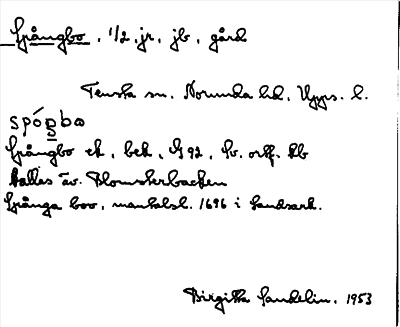 Spångbo, 1/2, jr, jb, gård
Tensta sn. Norunda hd, Upps. l.
spóŋbo
Spångbo ek, bek, G 92, Sv. ortf. kb
kallas äv. Blomsterbacken
Spånga boo, mantalsl. 1696 i landsark.
Birgitta Sandelin. 1953